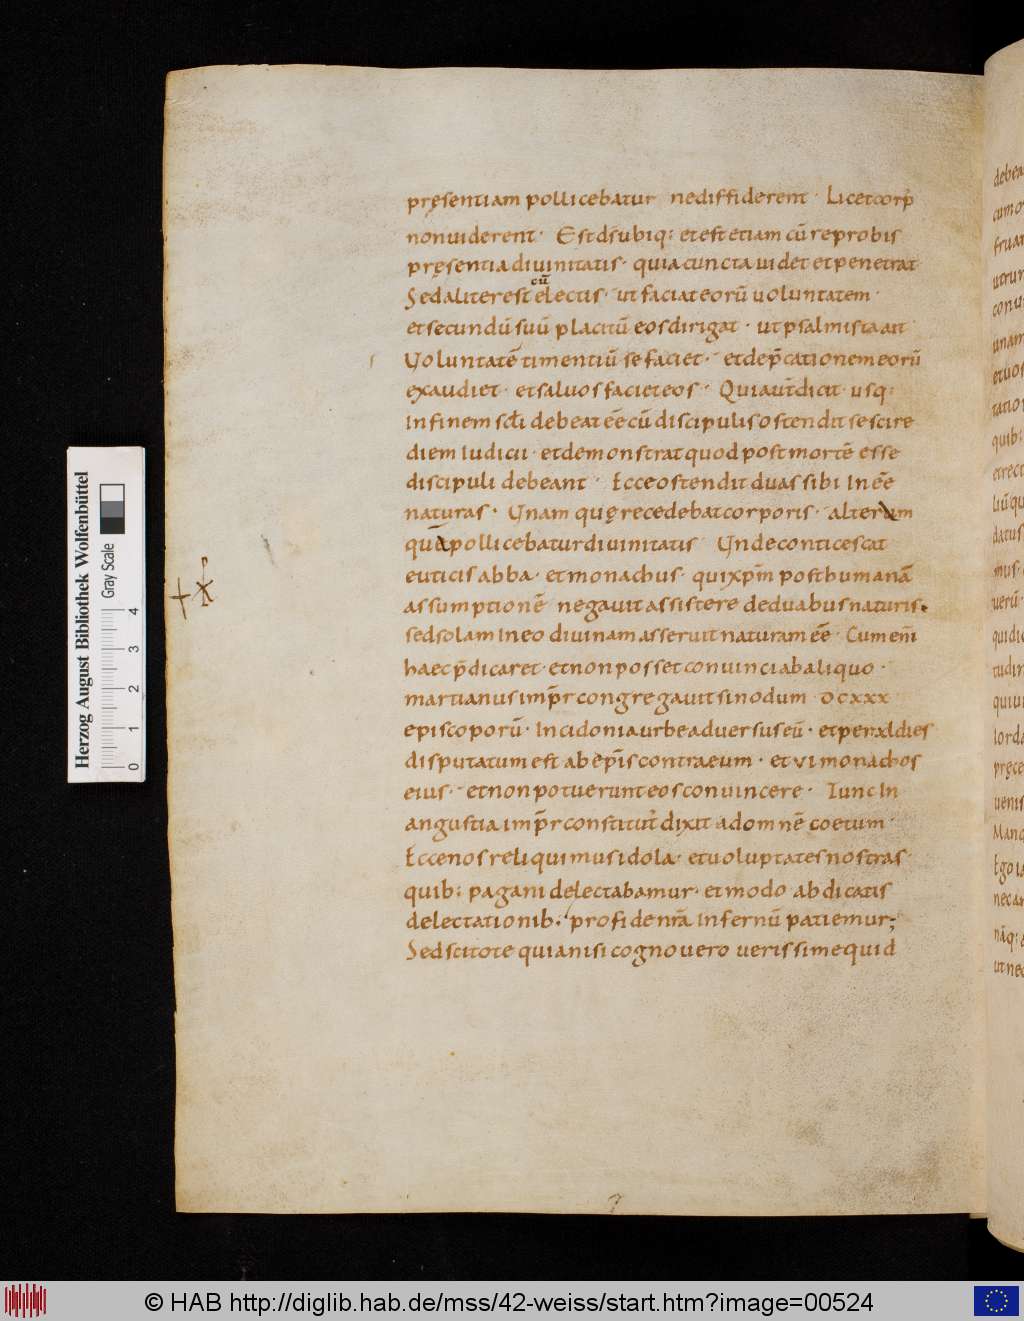 pręsentiam pollicebatur nediffiderent · Licet corꝑ
non uiderent · Est dŝ ubiq; et est etiam cū reprobis
pręsentia diuinitatis · quia cuncta uidet et penetrat
cū
Sed aliter est electis · ut faciat eorū uoluntatem ·
et secundū suū placitū eos dirigat · ut psalmista ait
Uoluntatē timentiū se faciet · et dep̄cationem eorū
exaudiet · et saluos faciet eos · Quia ut̄ dicit usq;
In finem sc̄li debeat eē cū discipulis ostendit se scire
diem Iudicii · et demonstrat quod post mortē esse
discipuli debeant · Ecce ostendit duas sibi In eē
naturas · Unam quę recedebat corporis · alterum
quē pollicebatur diuinitatis Unde conticescat
euticis abba · et monachus · qui xp̄m post humanā
assumptionē negauit assistere de duabus naturis ·
sed solam In eo diuinam asseruit naturam eē · Cum eni̅
haec p̄dicaret · et non posset conuinci ab aliquo ·
martianus imp̄r congregauit sinodum DCXXX
episcoporū · In cidonia urbe aduersus eū · et per xl dies
disputatum est ab ep̄is contra eum · et VI monachos
eius · et non potuerunt eos conuincere · Tunc In
angustia imp̄r constitut᾽ dixit ad omnē coetum ·
Ecce nos reliquimus idola · et uoluptates nostras ·
quib; pagani delectabamur · et modo abdicatis
delectationib; pro fide nr̄a Infernū patiemur;
Sed scitote quia nisi cognouero uerissime quid
debea
cum o
fruar
utrur
conu
unam
et uos
tatior
quib;
et rect
liū qu
datus
mus ·
uerū ·
quidic
tudin
quiui
Iorda
pręce
uenis
Manc
Ego ia
nec ar
nāq;
ut nec
Herzog August Bibliothek Wolfenbüttel
Gray Scale
0 1 2 3 4
© HAB http://diglib.hab.de/mss/42-weiss/start.htm?image=00524